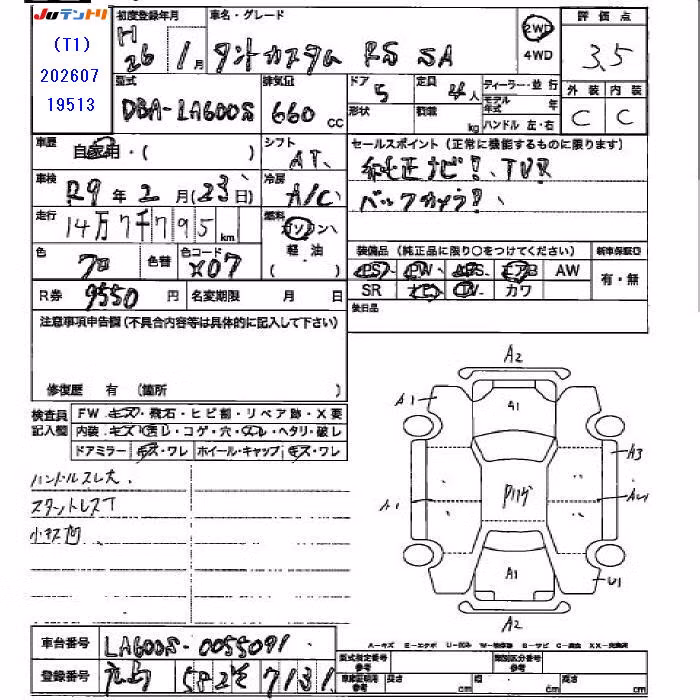 JUテントリ
(T1)
202607
19513
初度登録年月
H 26 / 1月
車名・グレード
タントカスタム RS SA
2WD
4WD
評価点
3.5
型式
DBA-LA600S
排気量
660 CC
ドア
5
形状
定員
4人
積載
kg
ディーラー・並行
モデル年式 年
ハンドル 左・右
外装 内装
C C
車歴
自家用・( )
シフト
AT
セールスポイント(正常に機能するものに限ります)
純正ナビ!、TVR
バックカメラ!
車検
R9年2月(23日)
冷房
A/C
走行
14万7千795km
燃料
ガソリン
軽・油
( )
色
クロ
色替
色コード
X07
装備品(純正品に限り○をつけてください)
PS PW ABS エアB AW
SR ナビ TV カワ
新車保証書
有・無
R券 9550円 名変期限 月 日
後日品
注意事項申告欄(不具合内容等は具体的に記入して下さい)
修復歴 有 (箇所 )
検査員記入欄
FW キズ・飛石・ヒビ割・リペア跡・X要
内装 キズ・汚し・コゲ・穴・スレ・ヘタリ・破レ
ドアミラー キズ・ワレ ホイール・キャップ キズ・ワレ
ハンドルスレ大
小キズ凹
A2
A1
A1
A3
A1
A1
U1
A2
車台番号 LA600S-0055091
登録番号 広島 582 そ 7131
型式指定番号 参考
類別区分番号 参考
車庫証明用 参考
長さ cm
幅 cm
高さ cm